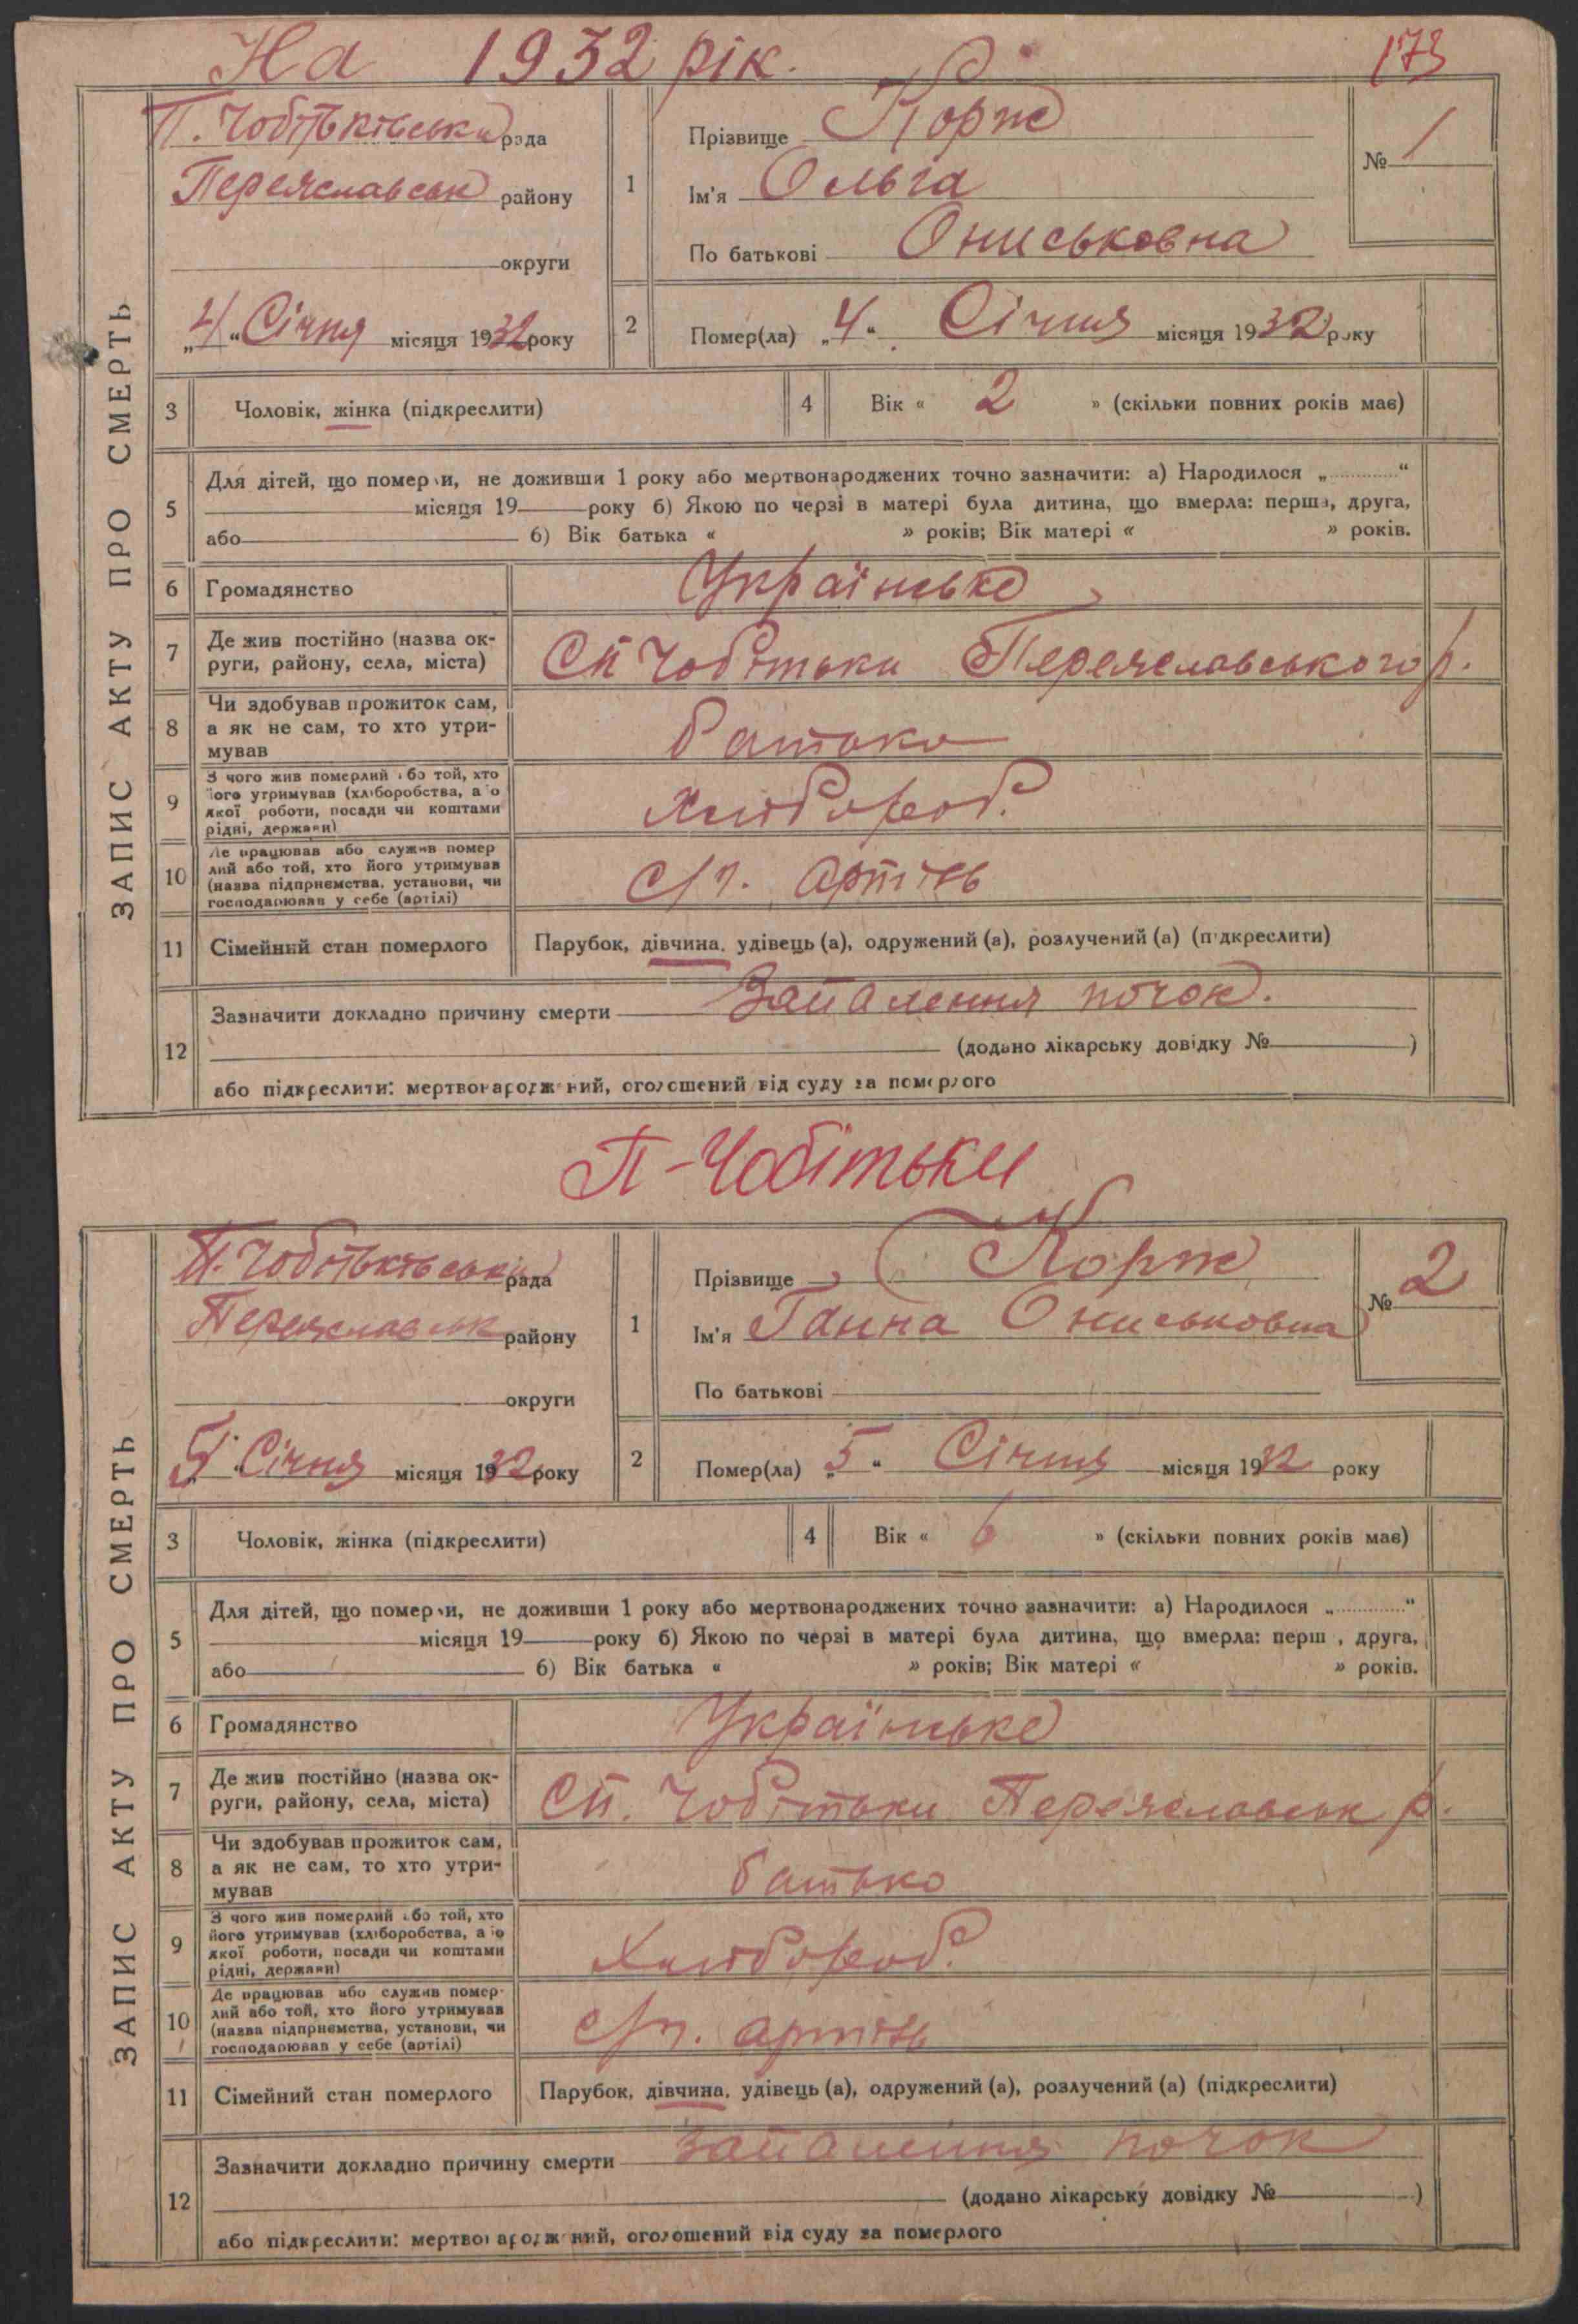 На 1932 рік.
173
ЗАПИС АКТУ ПРО СМЕРТЬ
П. Чобітьківська рада
Переяславськ району
округи
„4“ Січня місяця 1932 року
1
Прізвище Корж
Ім'я Ольга
По батькові Ониськовна
№ 1
2
Помер(ла) „4“ Січня місяця 1932 року
3 Чоловік, жінка (підкреслити)
4 Вік « 2 » (скільки повних років має)
5 Для дітей, що померли, не доживши 1 року або мертвонароджених точно зазначити: а) Народилося „ “
місяця 19 року б) Якою по черзі в матері була дитина, що вмерла: перша, друга,
або 6) Вік батька « » років; Вік матері « » років.
6 Громадянство Українське
7 Де жив постійно (назва ок-
руги, району, села, міста) СП Чобітьки Переяславського р.
8 Чи здобував прожиток сам,
а як не сам, то хто утри-
мував батько
9 З чого жив померлий або той, хто
його утримував (хліборобства, або
якої роботи, посади чи коштами
рідні, держави) Хлібороб.
10 Де працював або служив помер
лий або той, хто його утримував
(назва підприємства, установи, чи
господарював у себе (артілі) с/г. артіль
11 Сімейний стан померлого Парубок, дівчина, удівець (а), одружений (а), розлучений (а) (підкреслити)
12 Зазначити докладно причину смерти Запалення почок.
(додано лікарську довідку № )
або підкреслити: мертвонароджений, оголошений від суду за померлого
П-Чобітьки
ЗАПИС АКТУ ПРО СМЕРТЬ
П. Чобітьківська рада
Переяславськ району
округи
„5“ Січня місяця 1932 року
1
Прізвище Корж
Ім'я Ганна Ониськовна
По батькові
№ 2
2
Помер(ла) „5“ Січня місяця 1932 року
3 Чоловік, жінка (підкреслити)
4 Вік « 6 » (скільки повних років має)
5 Для дітей, що померли, не доживши 1 року або мертвонароджених точно зазначити: а) Народилося „ “
місяця 19 року б) Якою по черзі в матері була дитина, що вмерла: перш , друга,
або 6) Вік батька « » років; Вік матері « » років.
6 Громадянство Українське
7 Де жив постійно (назва ок-
руги, району, села, міста) СП. Чобітьки Переяславськ р.
8 Чи здобував прожиток сам,
а як не сам, то хто утри-
мував батько
9 З чого жив померлий або той, хто
його утримував (хліборобства, або
якої роботи, посади чи коштами
рідні, держави) Хлібороб.
10 Де працював або служив помер-
лий або той, хто його утримував
(назва підприємства, установи, чи
господарював у себе (артілі) с/г. артіль
11 Сімейний стан померлого Парубок, дівчина, удівець (а), одружений (а), розлучений (а) (підкреслити)
12 Зазначити докладно причину смерти запалення почок
(додано лікарську довідку № )
або підкреслити: мертвонароджений, оголошений від суду за померлого